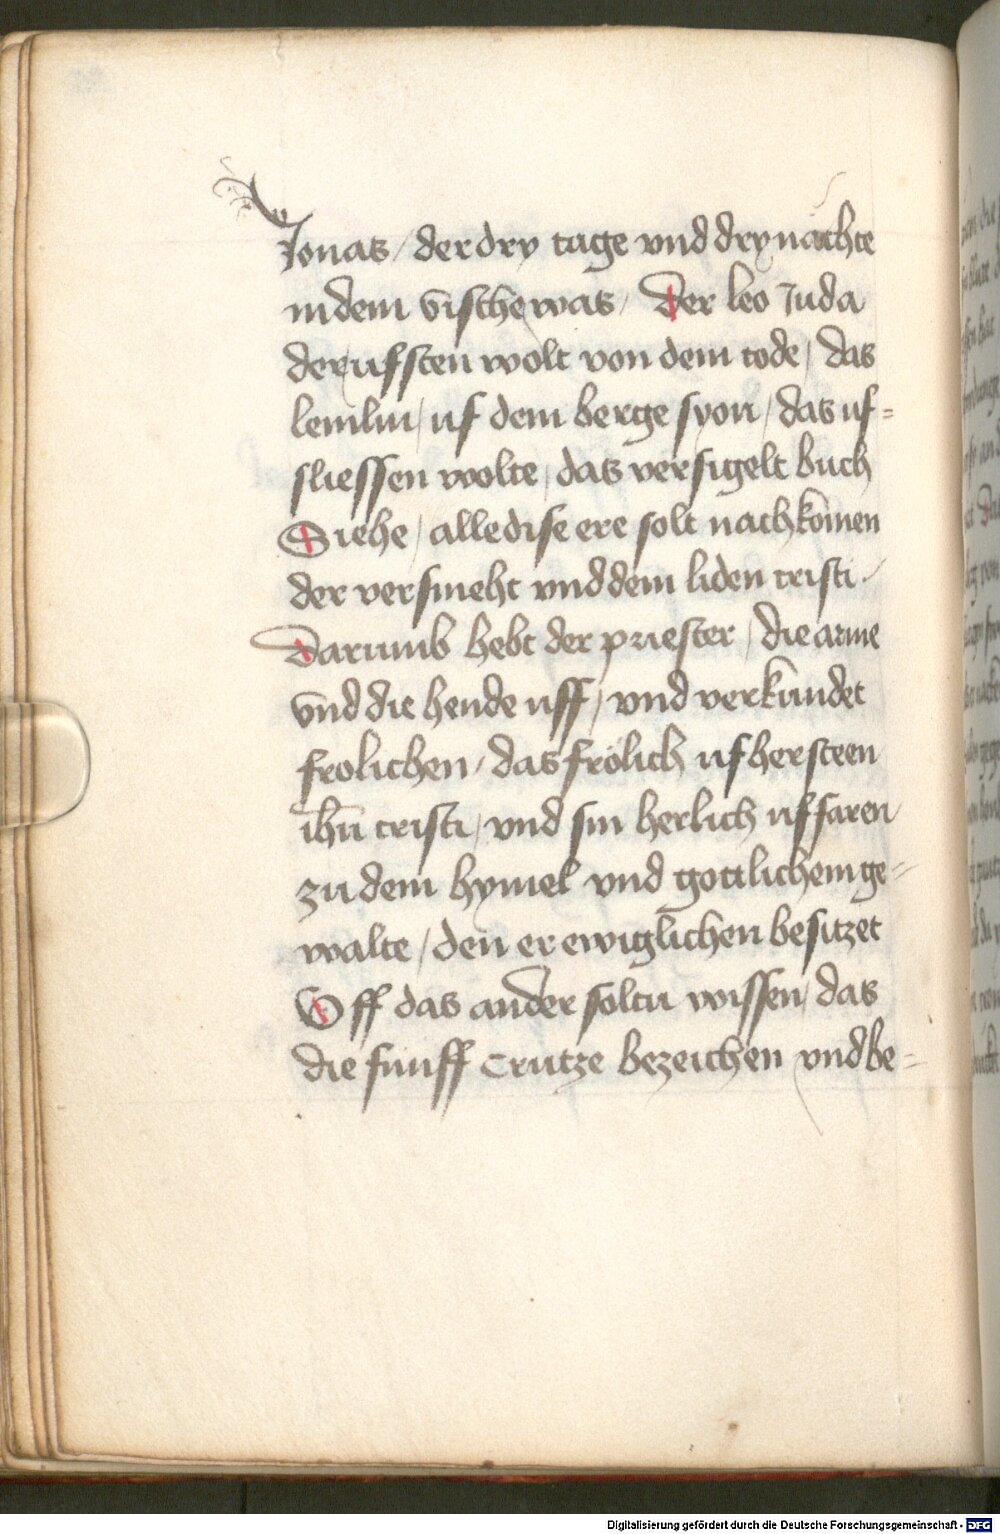 Jonas / der dry tage vnd dry nachte
in dem vische was / Der leo Juda
der ufsteen wolt von dem tode / das
lemlin / uf dem berge syon / das uf=
sliessen wolte / das versigelt buch
Siehe / alle dise ere solt nach komen
der versmeht vnd dem liden cristi /
Darumb hebt der priester / die arme
vnd die hende uff / vnd verkundet
frolichen / das frölich uf hersteen
ihū cristi / vnd sin herlich uffaren
zu dem hymel vnd gottlichem ge=
walte / den er ewiglichen besitzet
Off das ander soltu wissen / das
die funff Crutze bezeichen vnd be=
Digitalisierung gefördert durch die Deutsche Forschungsgemeinschaft - DFG